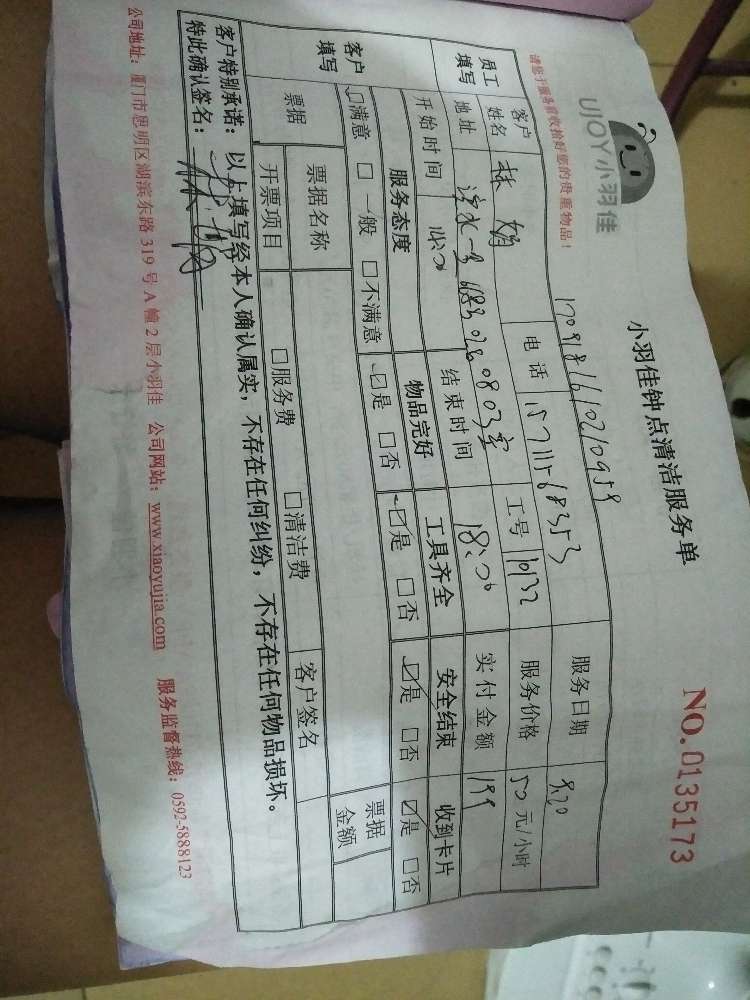 UJOY小羽佳
小羽佳钟点清洁服务单
NO.0135173
请您于服务前收拾好您的贵重物品！
170918161020959
员工填写
客户姓名
林娟
电话
15711568353
服务日期
9.20
地址
工号
10132
服务价格
50元/小时
开始时间
14:00
结束时间
18:00
实付金额
199
客户填写
服务态度
物品完好
工具齐全
安全结束
收到卡片
满意 □一般 □不满意
是 □否
是 □否
是 □否
是 □否
票据
票据名称
客户签名
票据金额
开票项目
□服务费 □清洁费
客户特别承诺：以上填写经本人确认属实，不存在任何纠纷，不存在任何物品损坏。
特此确认签名：林娟
公司地址：厦门市思明区湖滨东路319号A幢2层小羽佳 公司网站：www.xiaoyujia.com 服务监督热线：0592-5888123